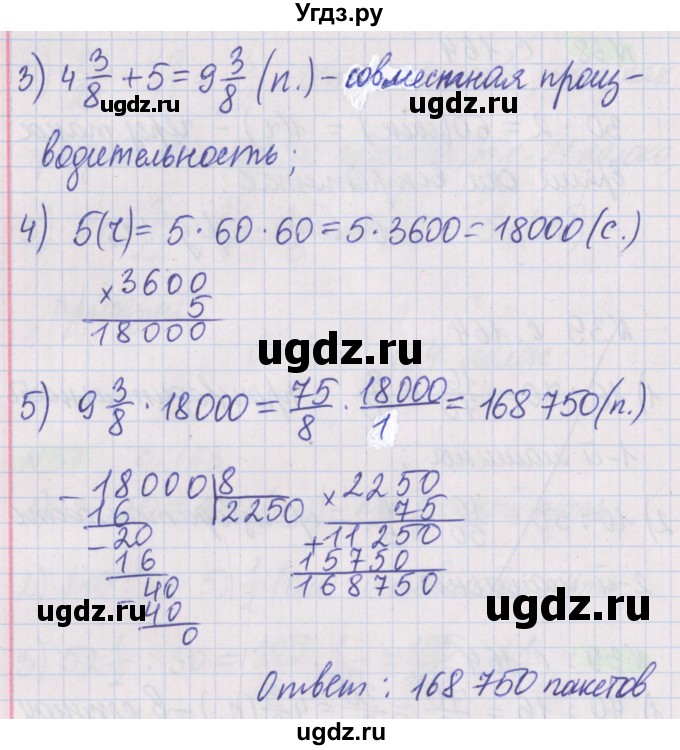 Угдз.ру
3) 4 3/8 + 5 = 9 3/8 (п.) – совместная произ-
водительность;
ugdz.ru
ugdz.ru
4) 5(ч) = 5 · 60 · 60 = 5 · 3600 = 18000 (с.)
× 3600
5
18000
ugdz.ru
5) 9 3/8 · 18000 = 75/8 · 18000/1 = 168 750 (п.)
ugdz.ru
– 18000 | 8
16 | 2250
– 20
16
– 40
40
0
× 2250
75
+ 11250
15750
168750
ugdz.ru
ugdz.ru
Ответ: 168 750 пакетов
ugdz.ru